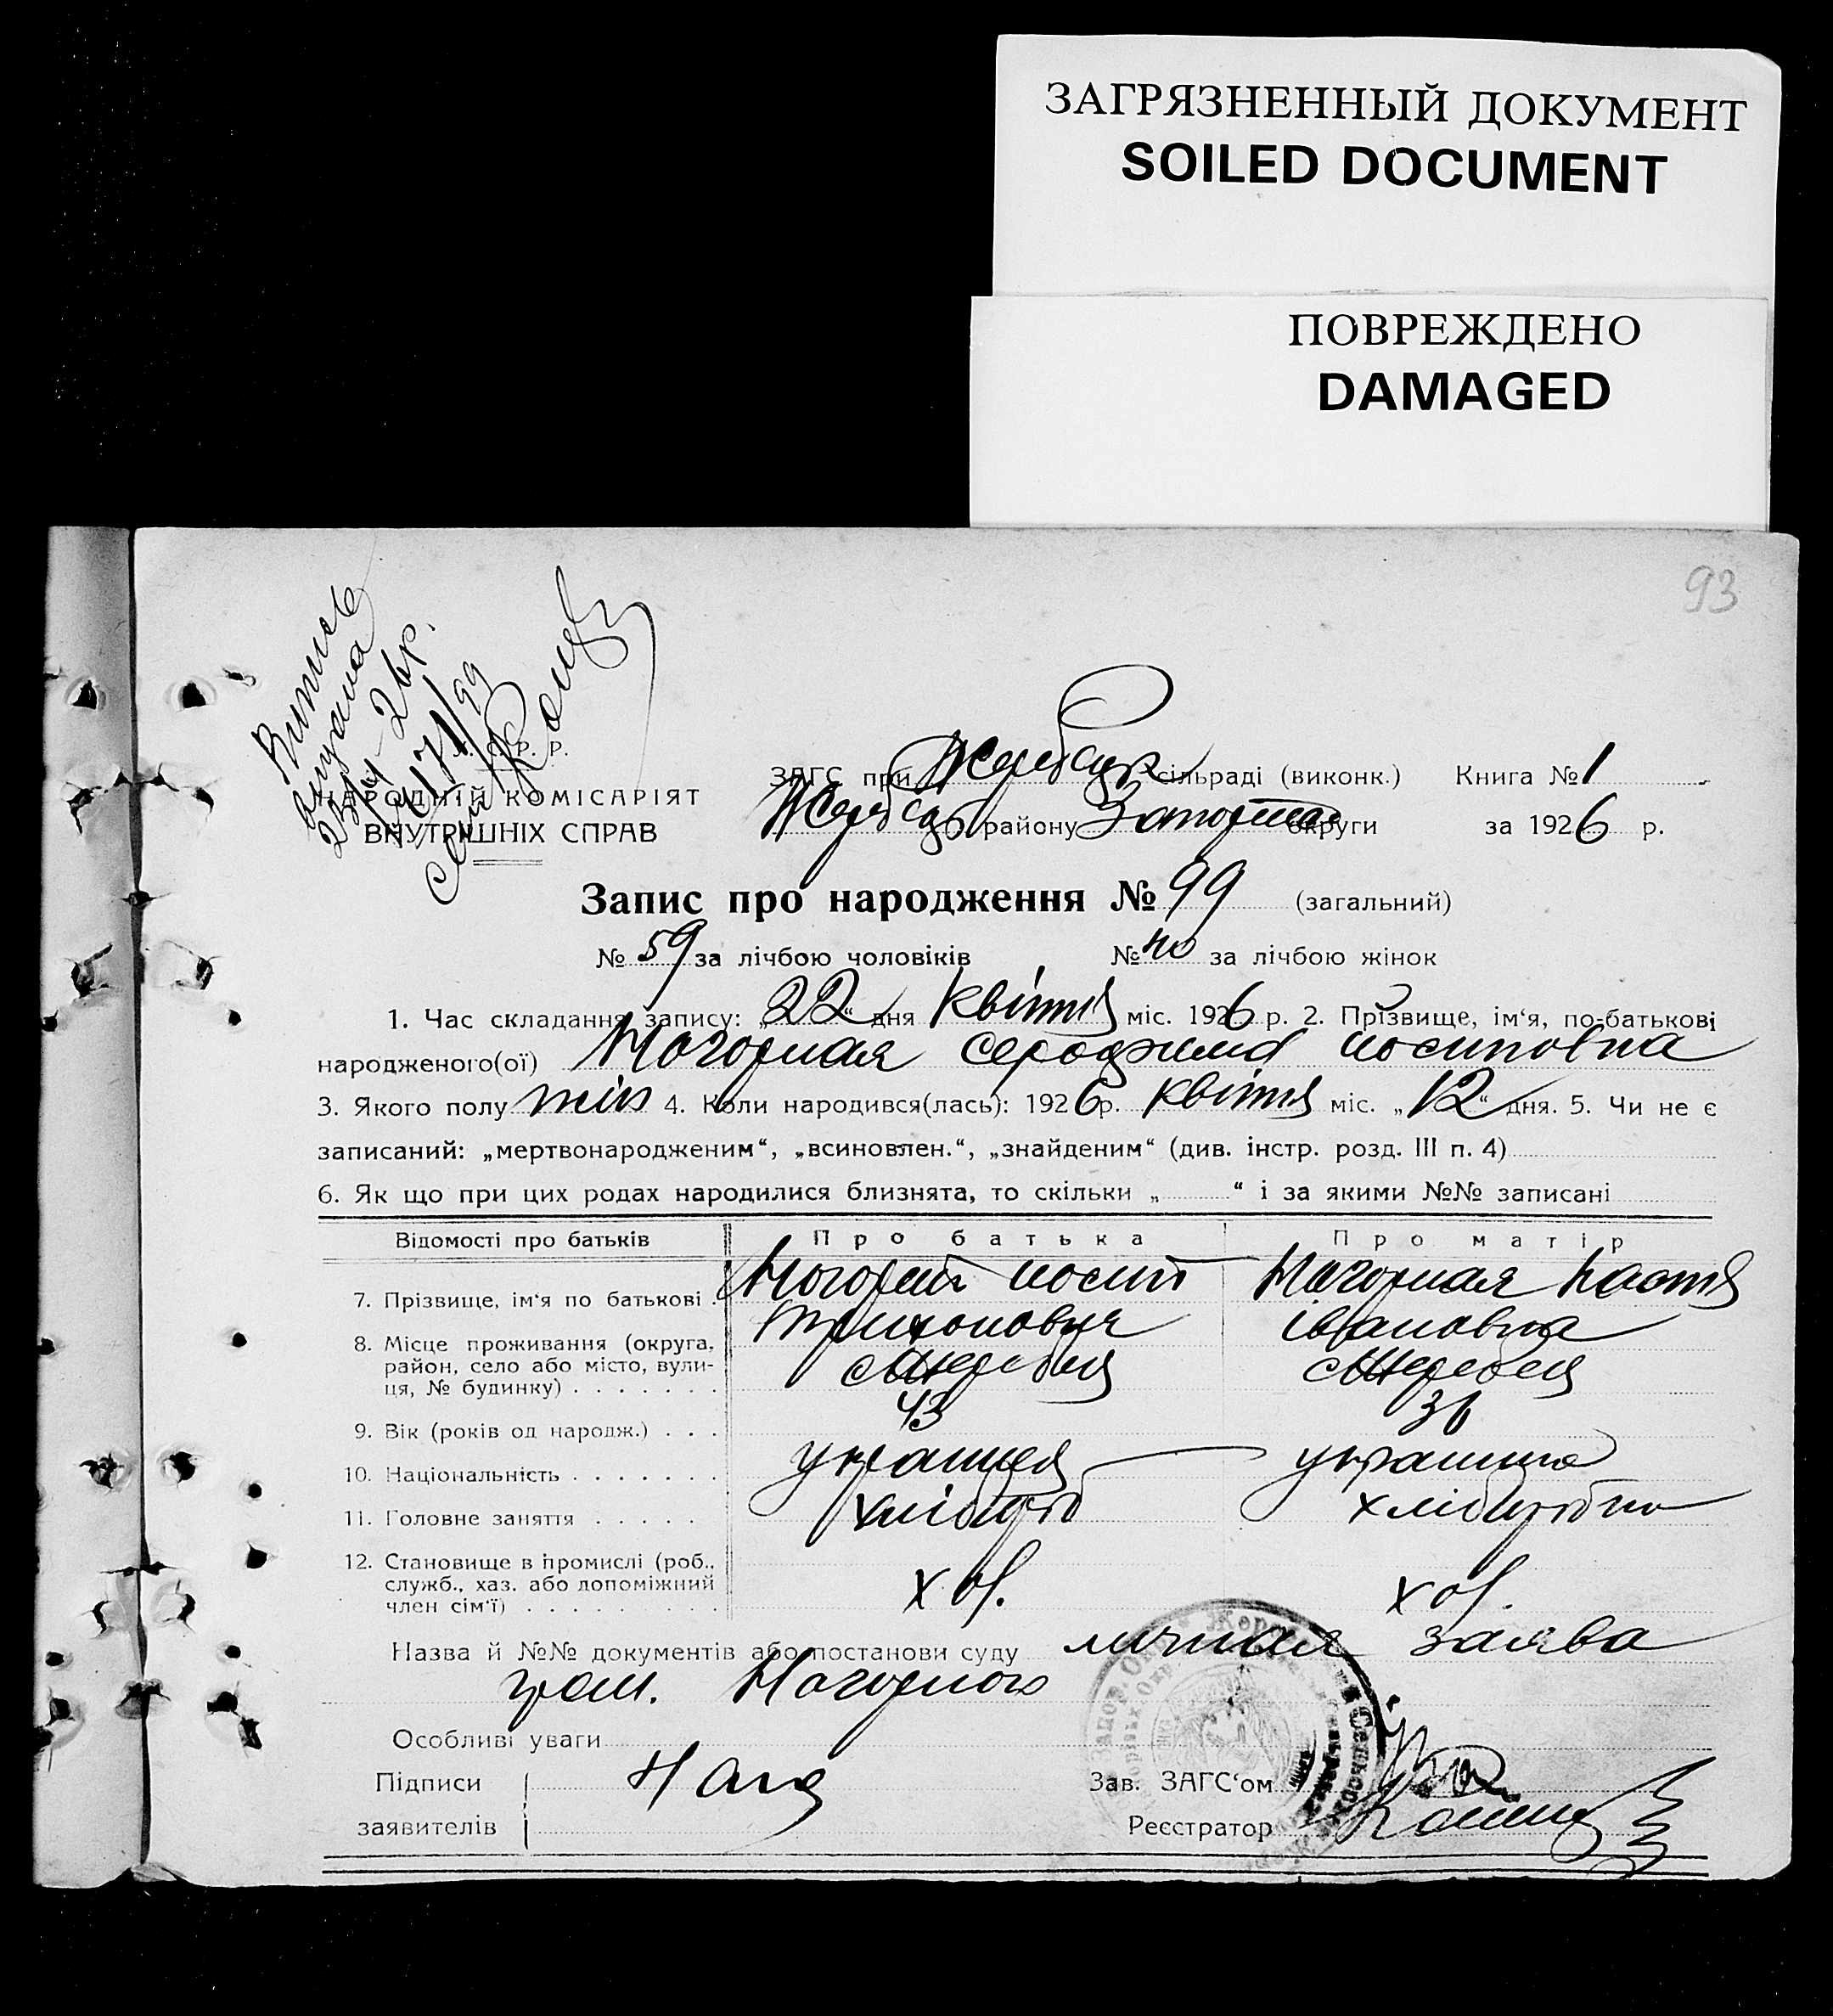 ЗАГРЯЗНЕННЫЙ ДОКУМЕНТ
SOILED DOCUMENT
ПОВРЕЖДЕНО
DAMAGED
93
С. Р. Р.
НАРОДНІЙ КОМІСАРІЯТ
ВНУТРІШНІХ СПРАВ
ЗАГС при сільраді (виконк.) Книга № 1
району округи за 1926 р.
Запис про народження № 99 (загальний)
№ 59 за лічбою чоловіків № 40 за лічбою жінок
1. Час складання запису: „22“ дня квітня міс. 1926 р. 2. Прізвище, ім‘я, по-батькові
народженого(ої) Нагорная иосиповна
3. Якого полу жін 4. Коли народився(лась): 1926 р. квітня міс. „12“ дня. 5. Чи не є
записаний: „мертвонародженим“, „всиновлен.“, „знайденим“ (див. інстр. розд. III п. 4)
6. Як що при цих родах народилися близнята, то скільки „ “ і за якими №№ записані
Відомості про батьків Про батька Про матір
7. Прізвище, ім‘я по батькові . Иосип Нагорная Настя
Трихонович івановна
8. Місце проживання (округа,
район, село або місто, вули-
ця, № будинку) . . . . . . . с Жеребец с Жеребец
9. Вік (років од народж.) . . . 43 36
10. Національність . . . . . . . украинец украинка
11. Головне заняття . . . . . хлібороб хліборобка
12. Становище в промислі (роб.,
служб., хаз. або допоміжний
член сім‘ї) . . . . . . . . хоз. хоз.
Назва й №№ документів або постанови суду личная заява
гром. Нагорного
Особливі уваги
Підписи
заявителів Наг
Зав. ЗАГС‘ом
Реєстратор